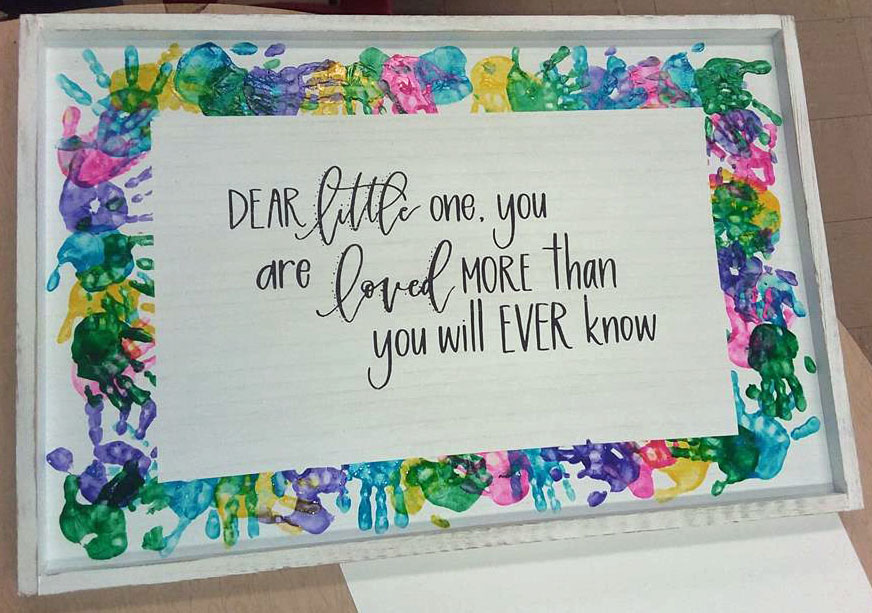 DEAR little one, you
are loved MORE than
you will EVER know